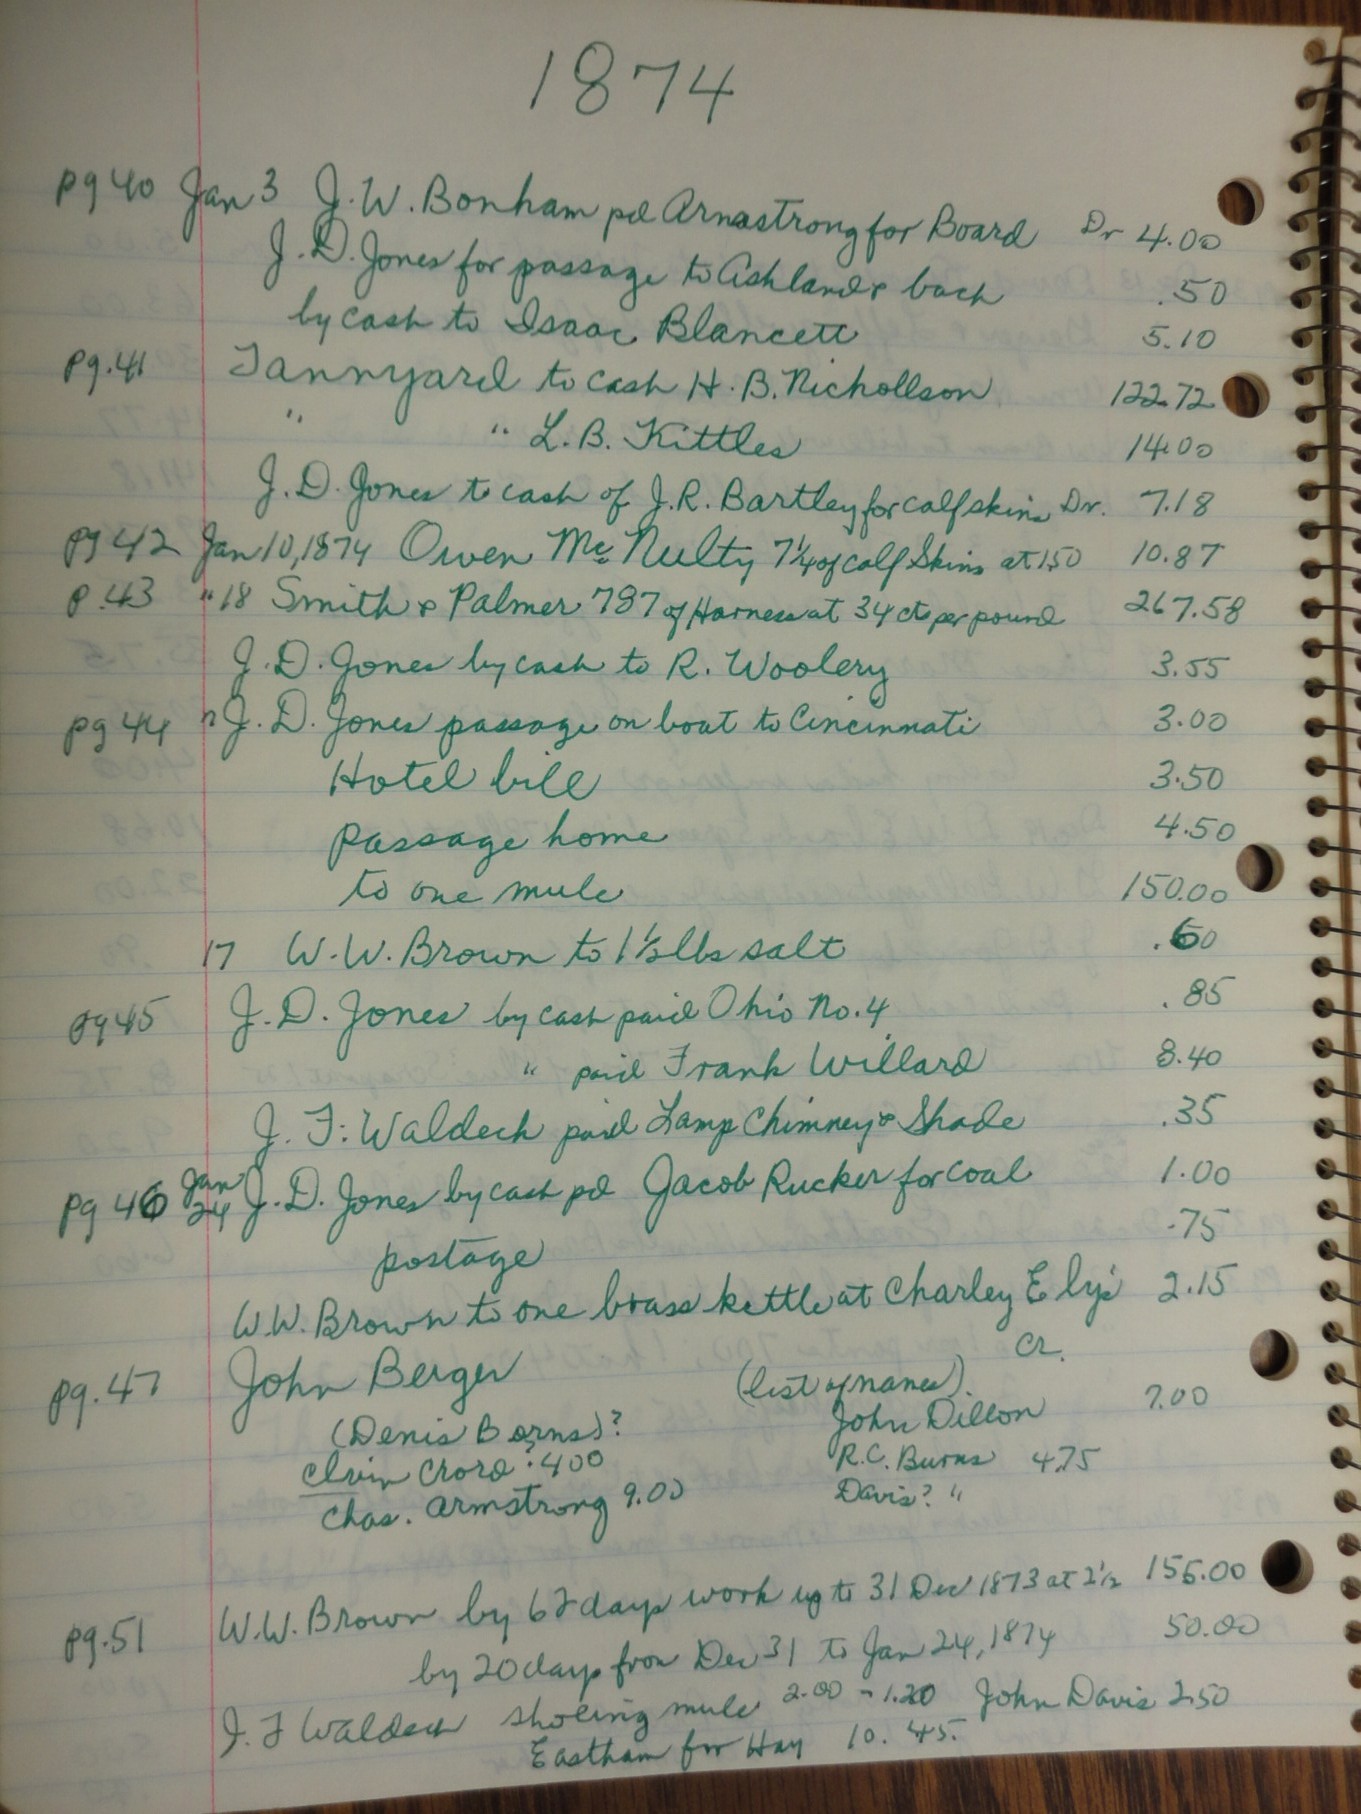 1874
pg 40 Jan 3 J. W. Bonham pd Armstrong for Board Dr 4.00
J. D. Jones for passage to Ashland & back .50
by cash to Isaac Blancett 5.10
pg. 41 Tannyard to cash H. B. Nichollson 122.72
" " L. B. Kittles 14.00
J. D. Jones to cash of J. R. Bartley for calfskins Dr. 7.18
pg 42 Jan 10, 1874 Owen Mc Nulty 7 1/4 of calf Skins at 150 10.87
p. 43 " 18 Smith & Palmer 787 of Harness at 34 cts per pound 267.58
J. D. Jones by cash to R. Woolery 3.55
pg 44 " J. D. Jones passage on boat to Cincinnati 3.00
Hotel bill 3.50
passage home 4.50
to one mule 150.00
17 W. W. Brown to 1 1/2 lbs salt .60
pg 45 J. D. Jones by cash paid Ohio No. 4 .85
" paid Frank Willard 8.40
J. F. Waldeck paid Lamp Chimney & Shade .35
pg 46 Jan 24 J. D. Jones by cash pd Jacob Rucker for coal 1.00
postage .75
W. W. Brown to one brass kettle at Charley Ely's 2.15
pg. 47 John Berger (list of names). Cr.
(Denis Borns)? John Dillon 7.00
Crord ? 400 R. C. Burns 4.75
Chas. Armstrong 9.00 Davis? "
pg. 51 W. W. Brown by 62 days work up to 31 Dec 1873 at 2 1/2 155.00
by 20 days from Dec 31 to Jan 24, 1874 50.00
J. F Waldeck shoeing mule 2.00 - 1.20 John Davis 2.50
Eastham for Hay 10. 45.